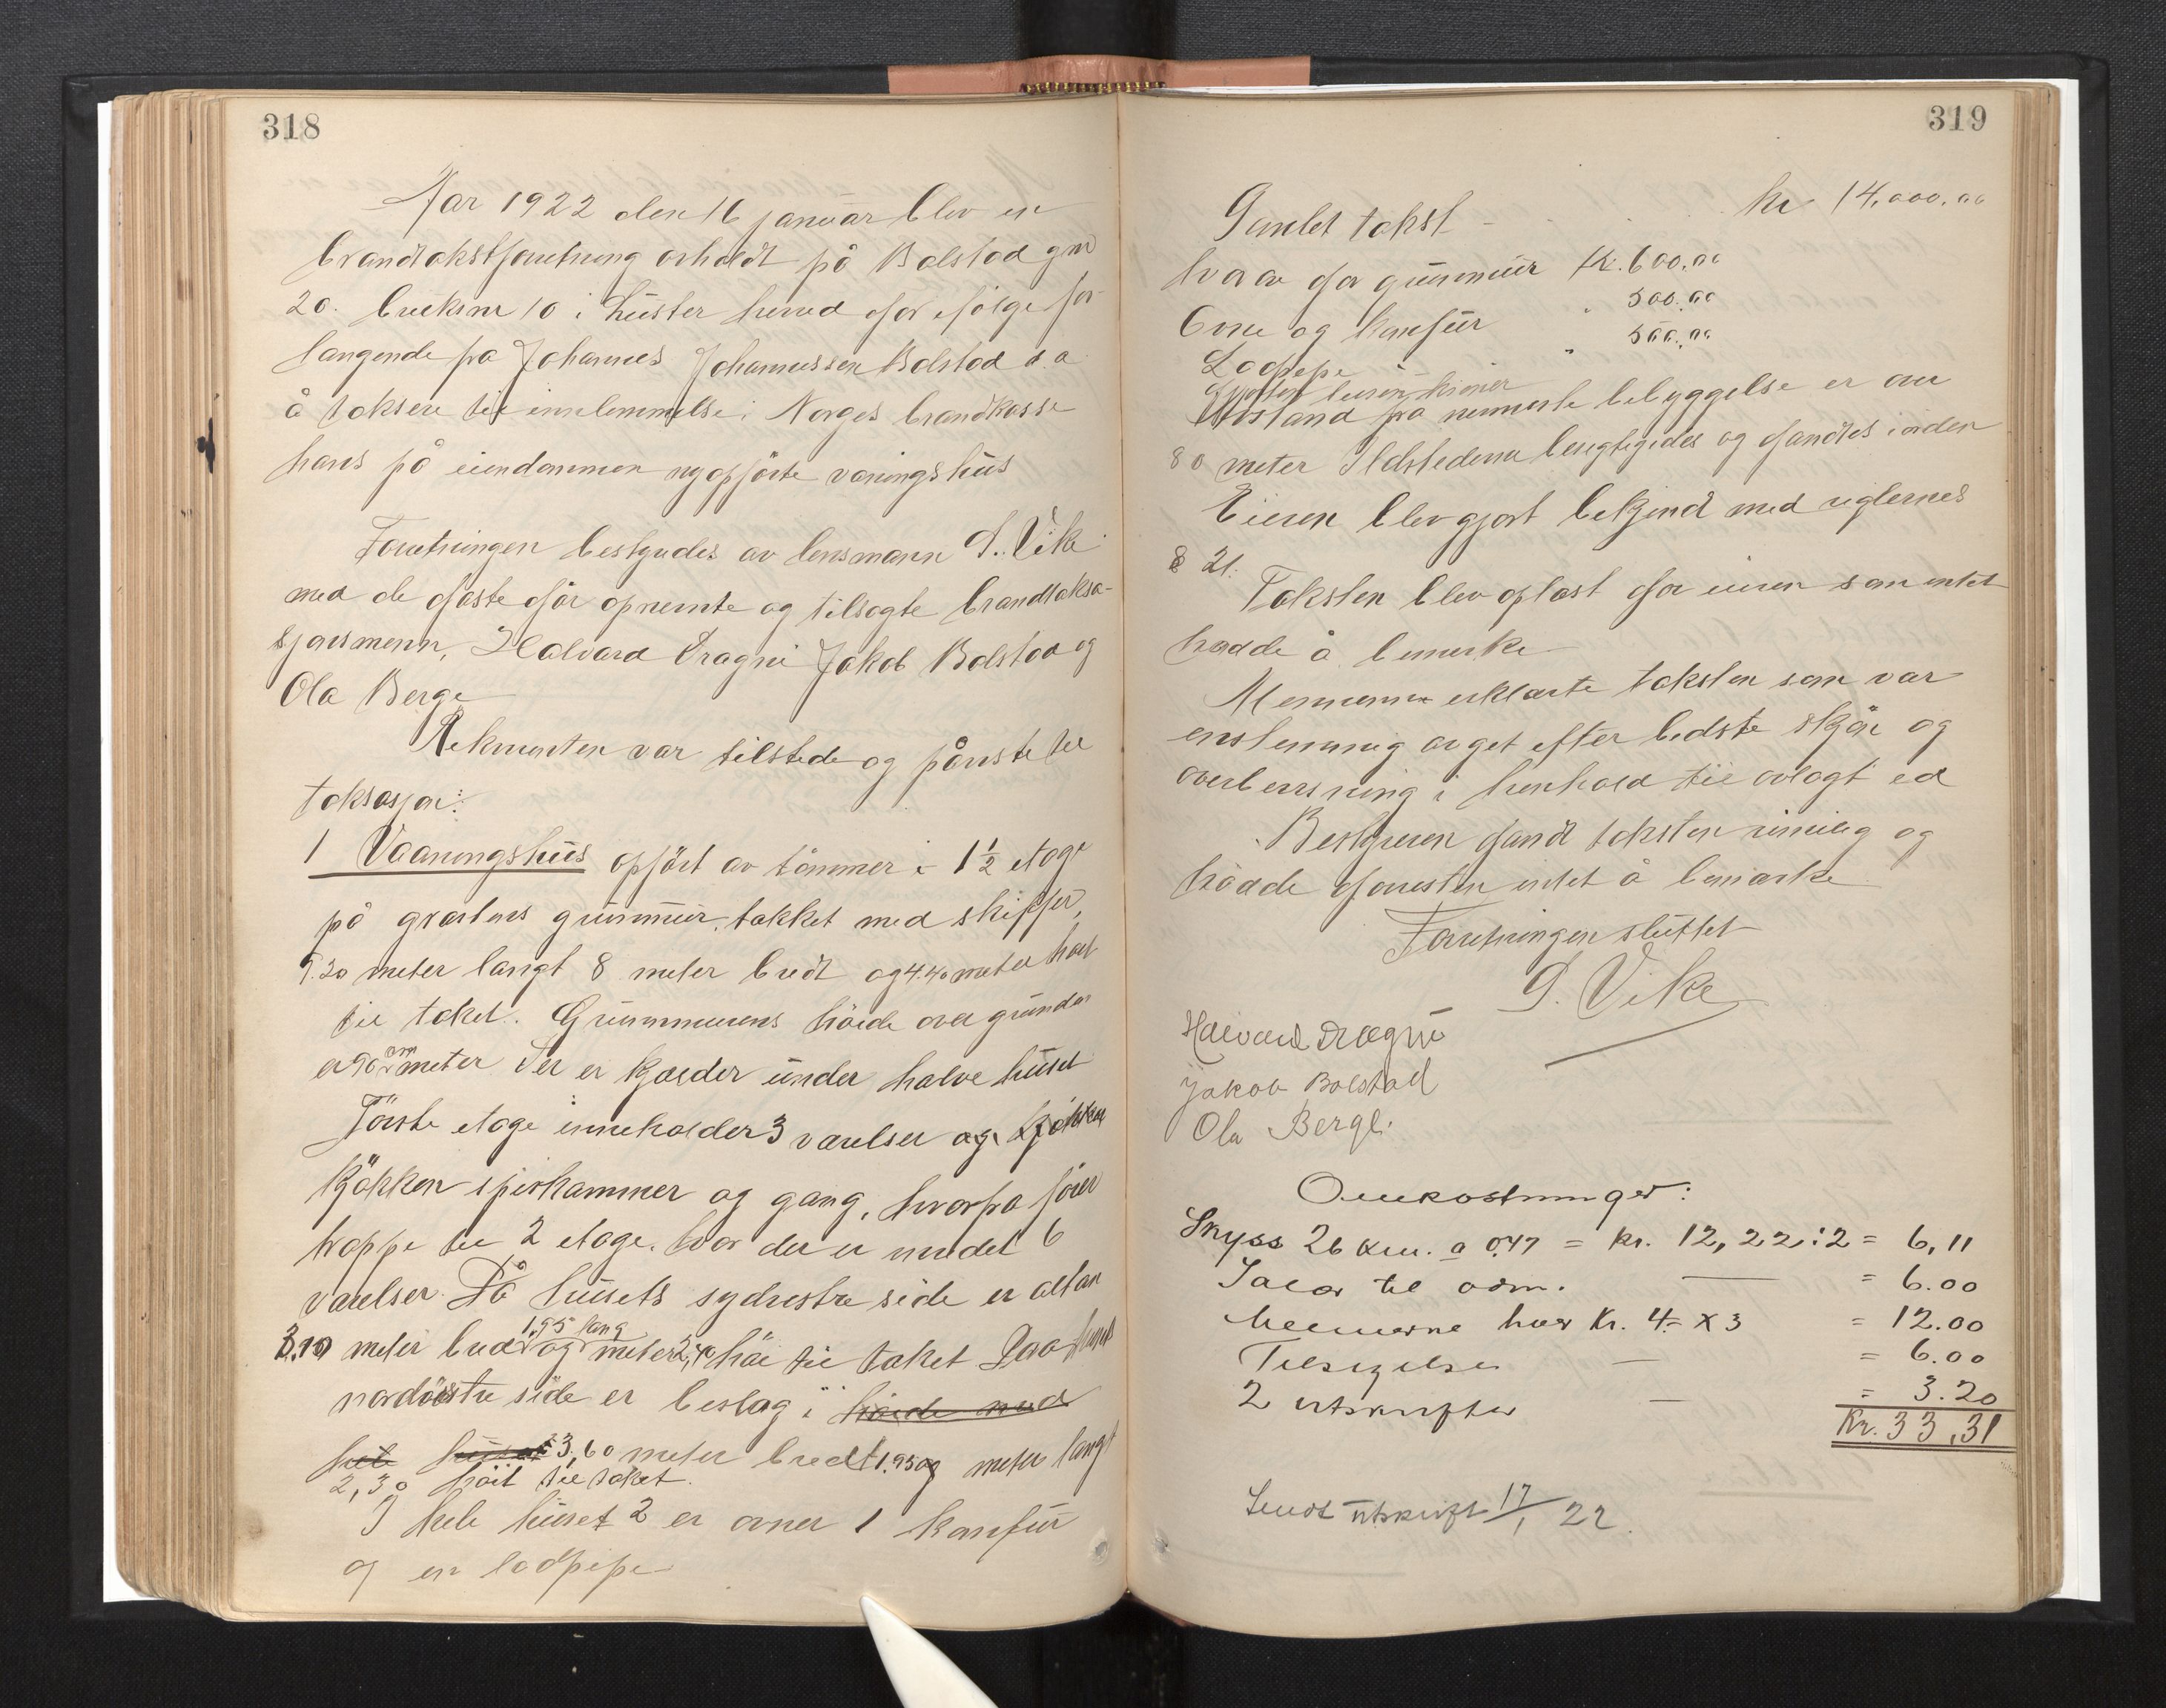 318
Aar 1922 den 16 januar blev en
brandtakstforretning avholdt på Bolstad gno
20. bruksnr 10 i Luster herred efter ifølge for-
langende fra Johannes Johannessen Bolstad d. a.
å taksere til innlemmelse i Norges brandkasse
hans på eiendommen nyopförte vaningshus
Forretningen bestyredes av lensmann S. Vike
med de faste før opnevnte og tilsagte brandtaksa-
sjonsmenn, Halvard Dragni Jakob Bolstad og
Ola Berge
Rekvirenten var tilstede og påviste til
taksasjon:
1 Vaaningshus opfört av tömmer i 1½ etage
på grastens grunmur, takket med skiffer,
9.20 meter langt 8 meter bredt og 4.40 meter høit
til taket. Grunmurens höide over grunden
er 90 cm meter Der er kjælder under halve huset
Förste etage inneholder 3 værelser og kjökken
Kjökken spiskammer og gang, hvorfra förer
trappe til 2 etage, hvor der er inredet 6
værelser. På husets sydvestre side er altan
3.10 meter bred 1.95 lang og meter 2,40 høi til taket Paa husets
nordöstre side er beslag i höide med
hele huset 3,60 meter bredt 1.95 og meter langt
2,30 höit til taket.
I hele huset 2 er ovner 1 komfur
og en lodpipe
319
Samlet takst - kr 14,000.00
hvorav for grunmur Kr. 600.00
Ovne og komfur " 500.00
Lodpipe " 500.00
Avstand fra nærmeste bebyggelse er over
80 meter Ildstederne besigtigedes og fandtes i orden
Eieren blev gjort bekjend med reglernes
§ 21.
Taksten blev oplæst for eieren som intet
hadde å bemerke
Mennerne erklærte taksten som var
enstemmig avget efter bedste skjön og
overbevisning i henhold til avlagt ed
Bestyreren fandt taksten rimelig og
hadde forresten intet å bemærke
Forretningen sluttet
S. Vike
Halvard Drægni
Jakob Bolstad
Ola Berge.
Omkostninger:
Skyss 26 km. a 0.47 = kr. 12,22:2 = 6,11
Salær til adm. — = 6.00
Mennerne hver Kr. 4.= x 3 = 12.00
Tilsigelse — = 6.00
2 utskrifter — = 3.20
Kr. 33,31
Sendt utskrift 17/1 22.